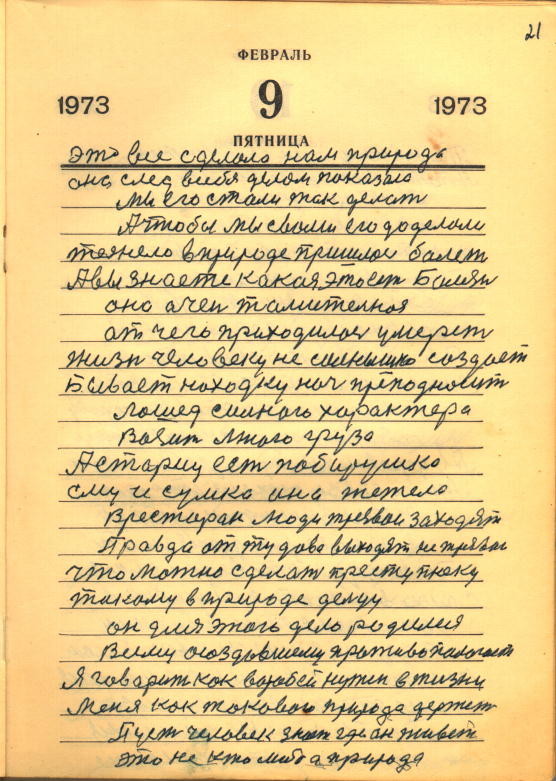 21
ФЕВРАЛЬ
1973 9 1973
ПЯТНИЦА
это все сделала нам природа
она след в себя делом показала
мы его стали так делат
А чтобы мы свами его доделали
тянело в природе пришлос болет
А вы знаете какая это ест Болезн
она очен тамителная
от чего приходилос умерет
жизн человеку не солнышко создает
Бывает находку нам преподносит
лошед силного характера
Возит много груза
А старцу ест побирушка
ему и сумка она тежела
В ресторан люди трезвои заходят
Правда от тудова выходят не трезвы
что можно сделат преступнику
такому в природе делцу
он для этого дело родился
Всему создавшему противополагает
Я говорит как воробей нужен в жизни
меня как такового природа держет
Пуст человек знает где он живет
это не кто либо а природа